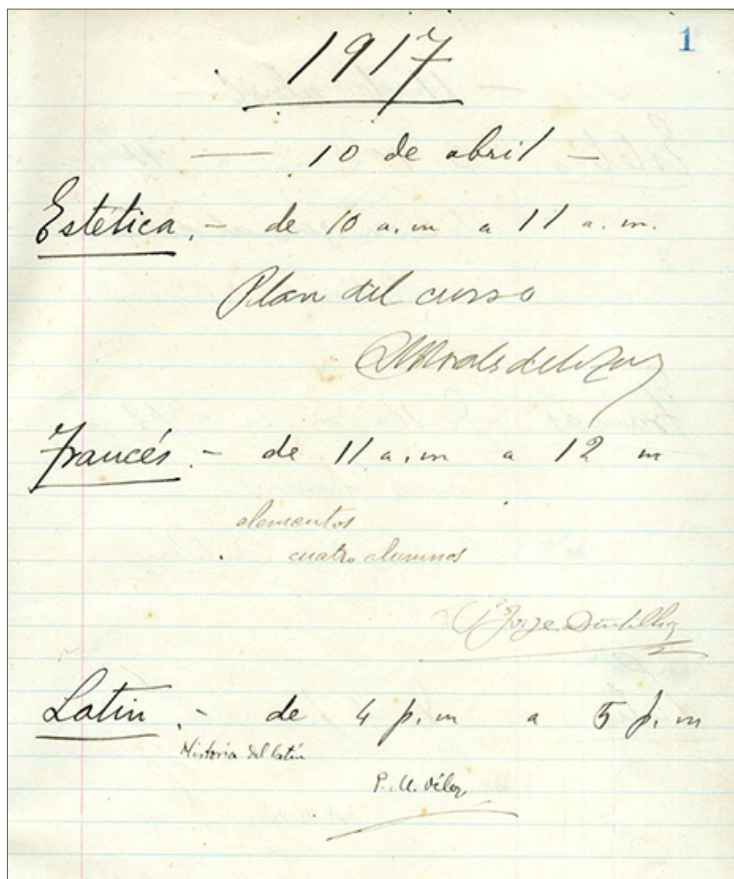 1
1917
— 10 de abril —
Estética.- de 10 a.m a 11 a.m.
Plan del curso
Francés.- de 11 a.m a 12 m
elementos
cuatro alumnos
Jorge Dintilhac
Latín.- de 4 p.m a 5 p.m
Historia del latín
P. M. Vélez